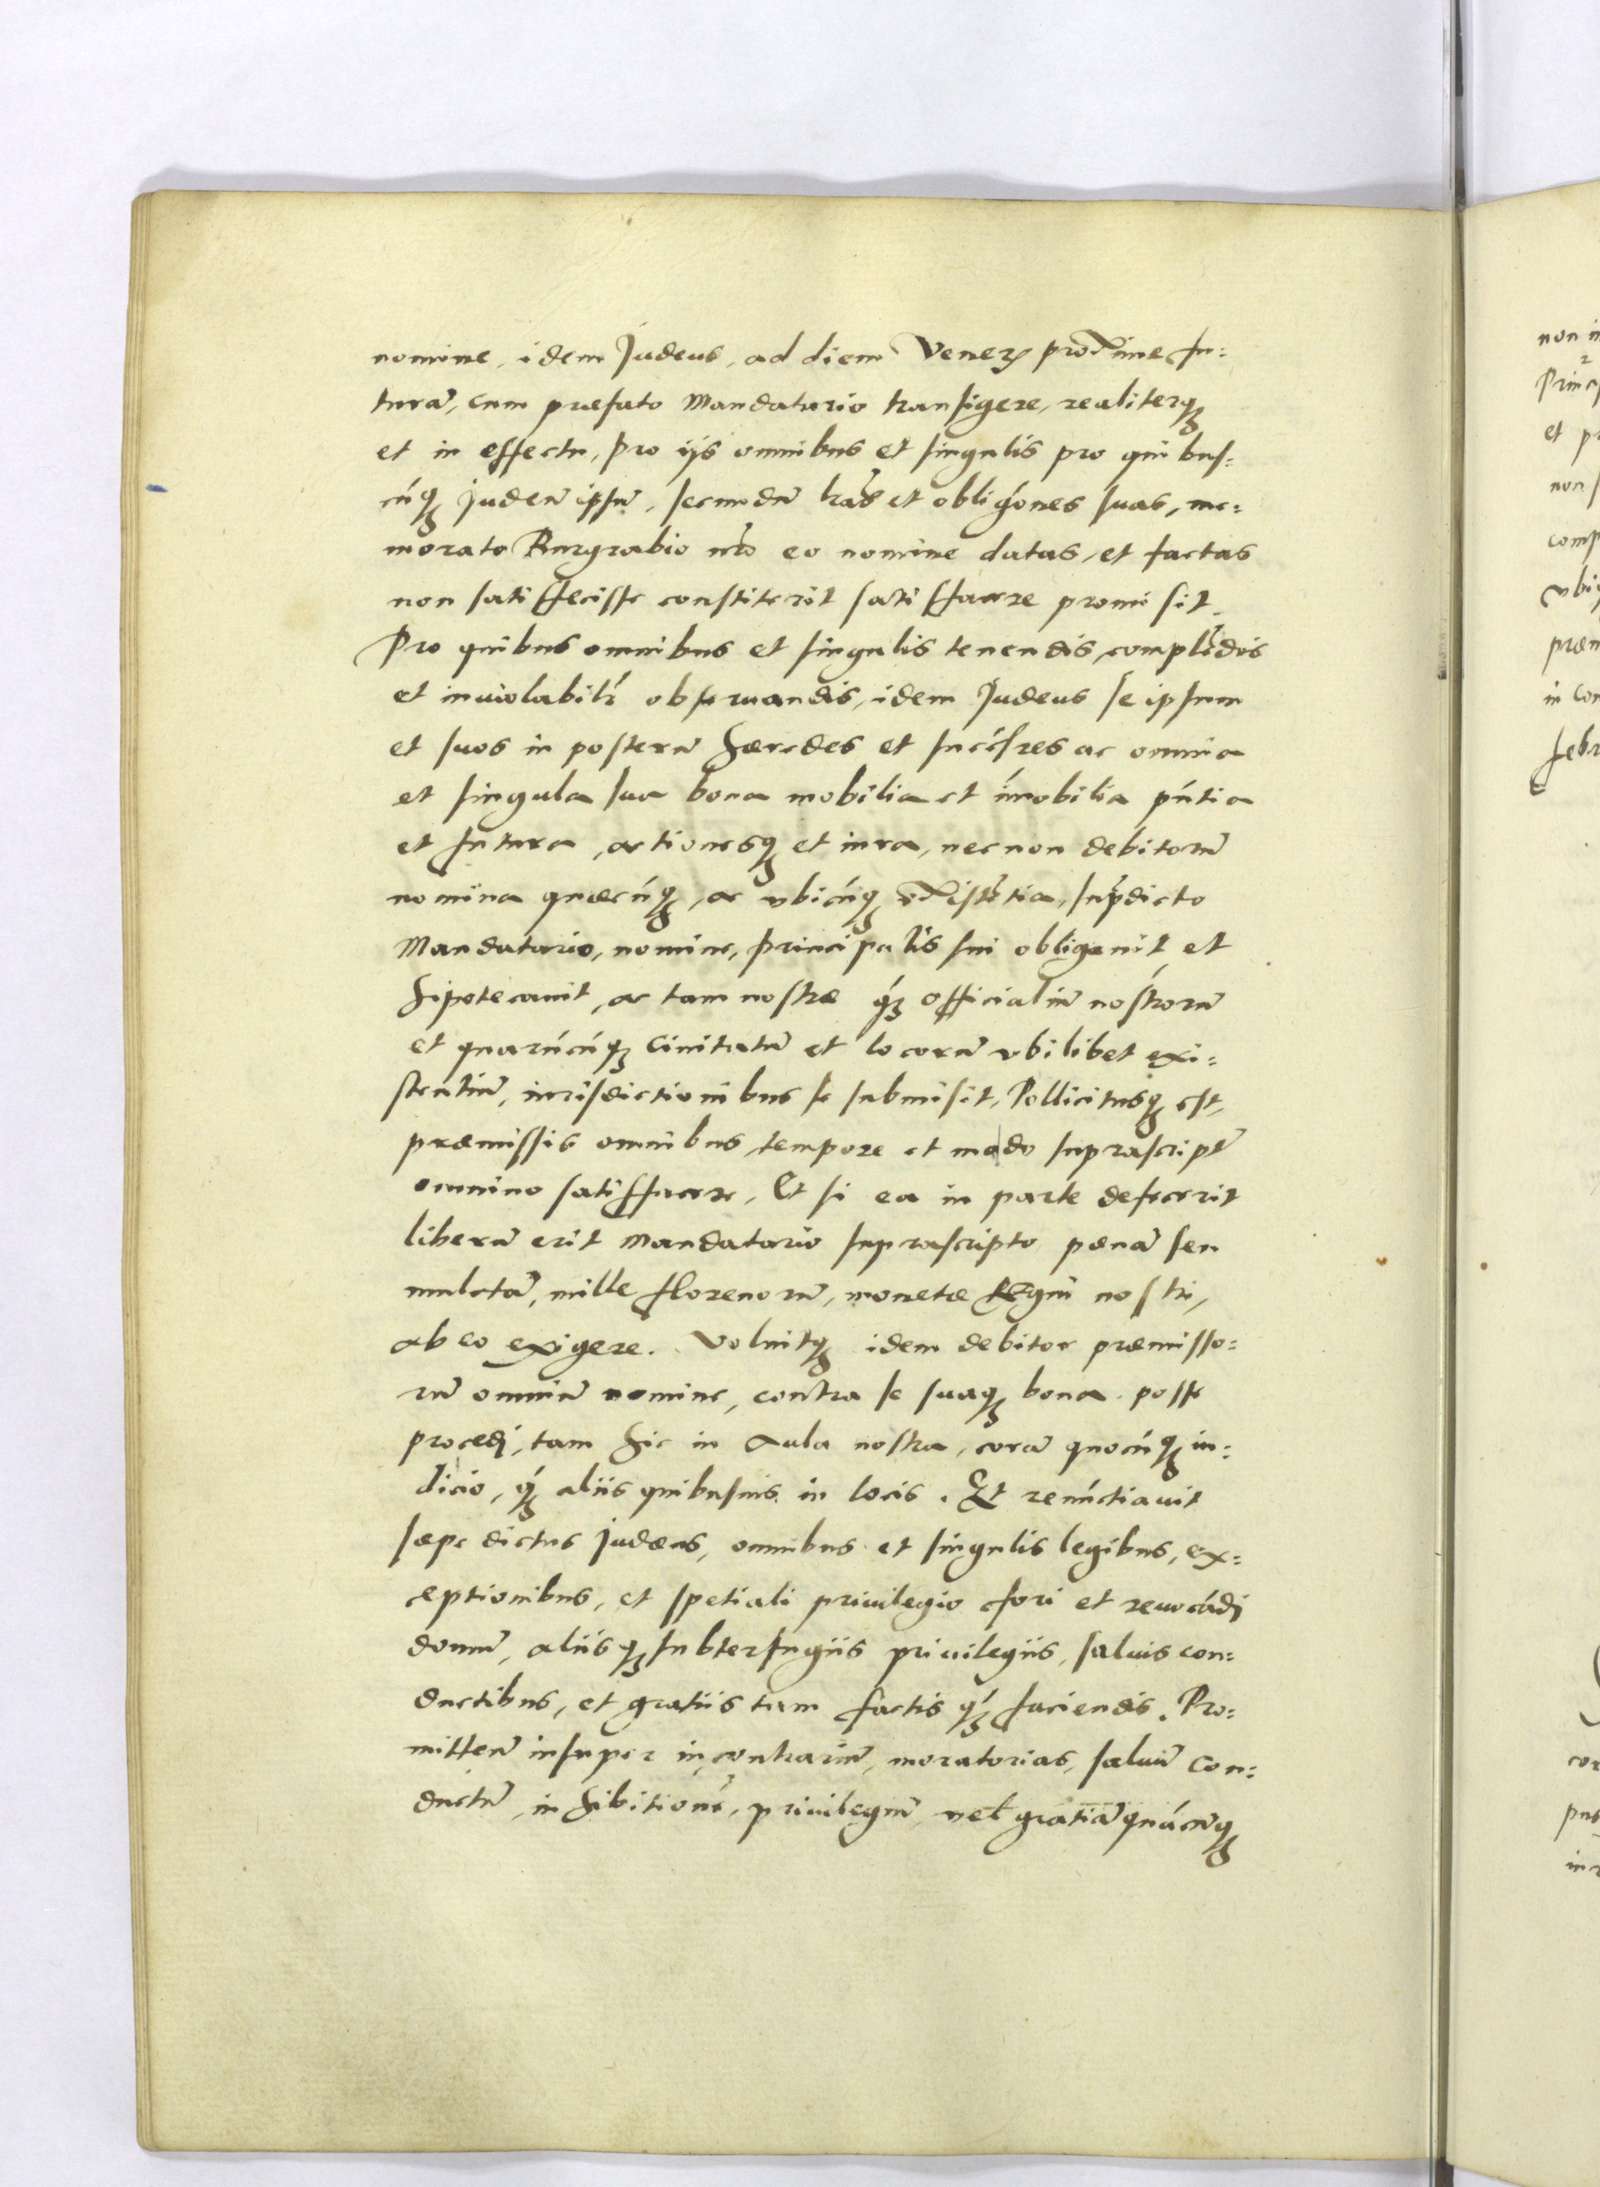 nomine, idem Judeus, ad diem Veneris proxime fu=
turā, cum præfato Mandatario transigere, realiterq
et in effectu, pro ijs omnibus et singulis pro quibus=
cūq Judeū ipsū, secundū lr̄as et obligōnes suas, me=
morato Burgrabio nr̄o eo nomine datas, et factas
non satisfecisse constiterit satisfacere promisit.
Pro quibus omnibus et singulis tenendis, complēdis
et inviolabilr̄ observandis, idem Judeus se ipsum
et suos in posterū hæredes et succēs̄res ac omnia
et singula sua bona mobilia et im̄obilia pn̄tia
et futura, actionesq et iura, necnon debitorū
nomina quæcūq, ac vbicūq existētia, sup̄dicto
Mandatario, nomine, principalis sui obligauit, et
hipotecauit, ac tam nostræ q̄ officialiū nostrorū
et quarūcūq Ciuitatū et locorū vbilibet exi=
stentiū, iurisdictionibus se submisit, Pollicitusq est,
præmissis omnibus, tempore et modo suprascript̄
omnino satisfacere, Et si ea in parte defecerit
liberū erit Mandatario suprascripto pœnā seu
mulctā, mille florenorū, monetæ Regni nostri,
ab eo exigere. Voluitq idem debitor præmisso=
rū omniū nomine, contra se suaq bona posse
procedi, tam hic in Aula nostra, corā quocūq iu=
dicio, q̄ aliis quibusuis in locis. Et renūctiavit
sæpe dictus Judæus, omnibus et singulis legibus, ex=
ceptionibus, et spetiali privilegio fori et reuocādi
domū, aliisq subterfugiis privilegiis, saluis con=
ductibus, et gratiis tam factis q̄ faciendis. Pro=
mittens insuper in contrariū, moratorias, saluū con=
ductū, inhibitionē, privilegiū vel gratiā quācūq